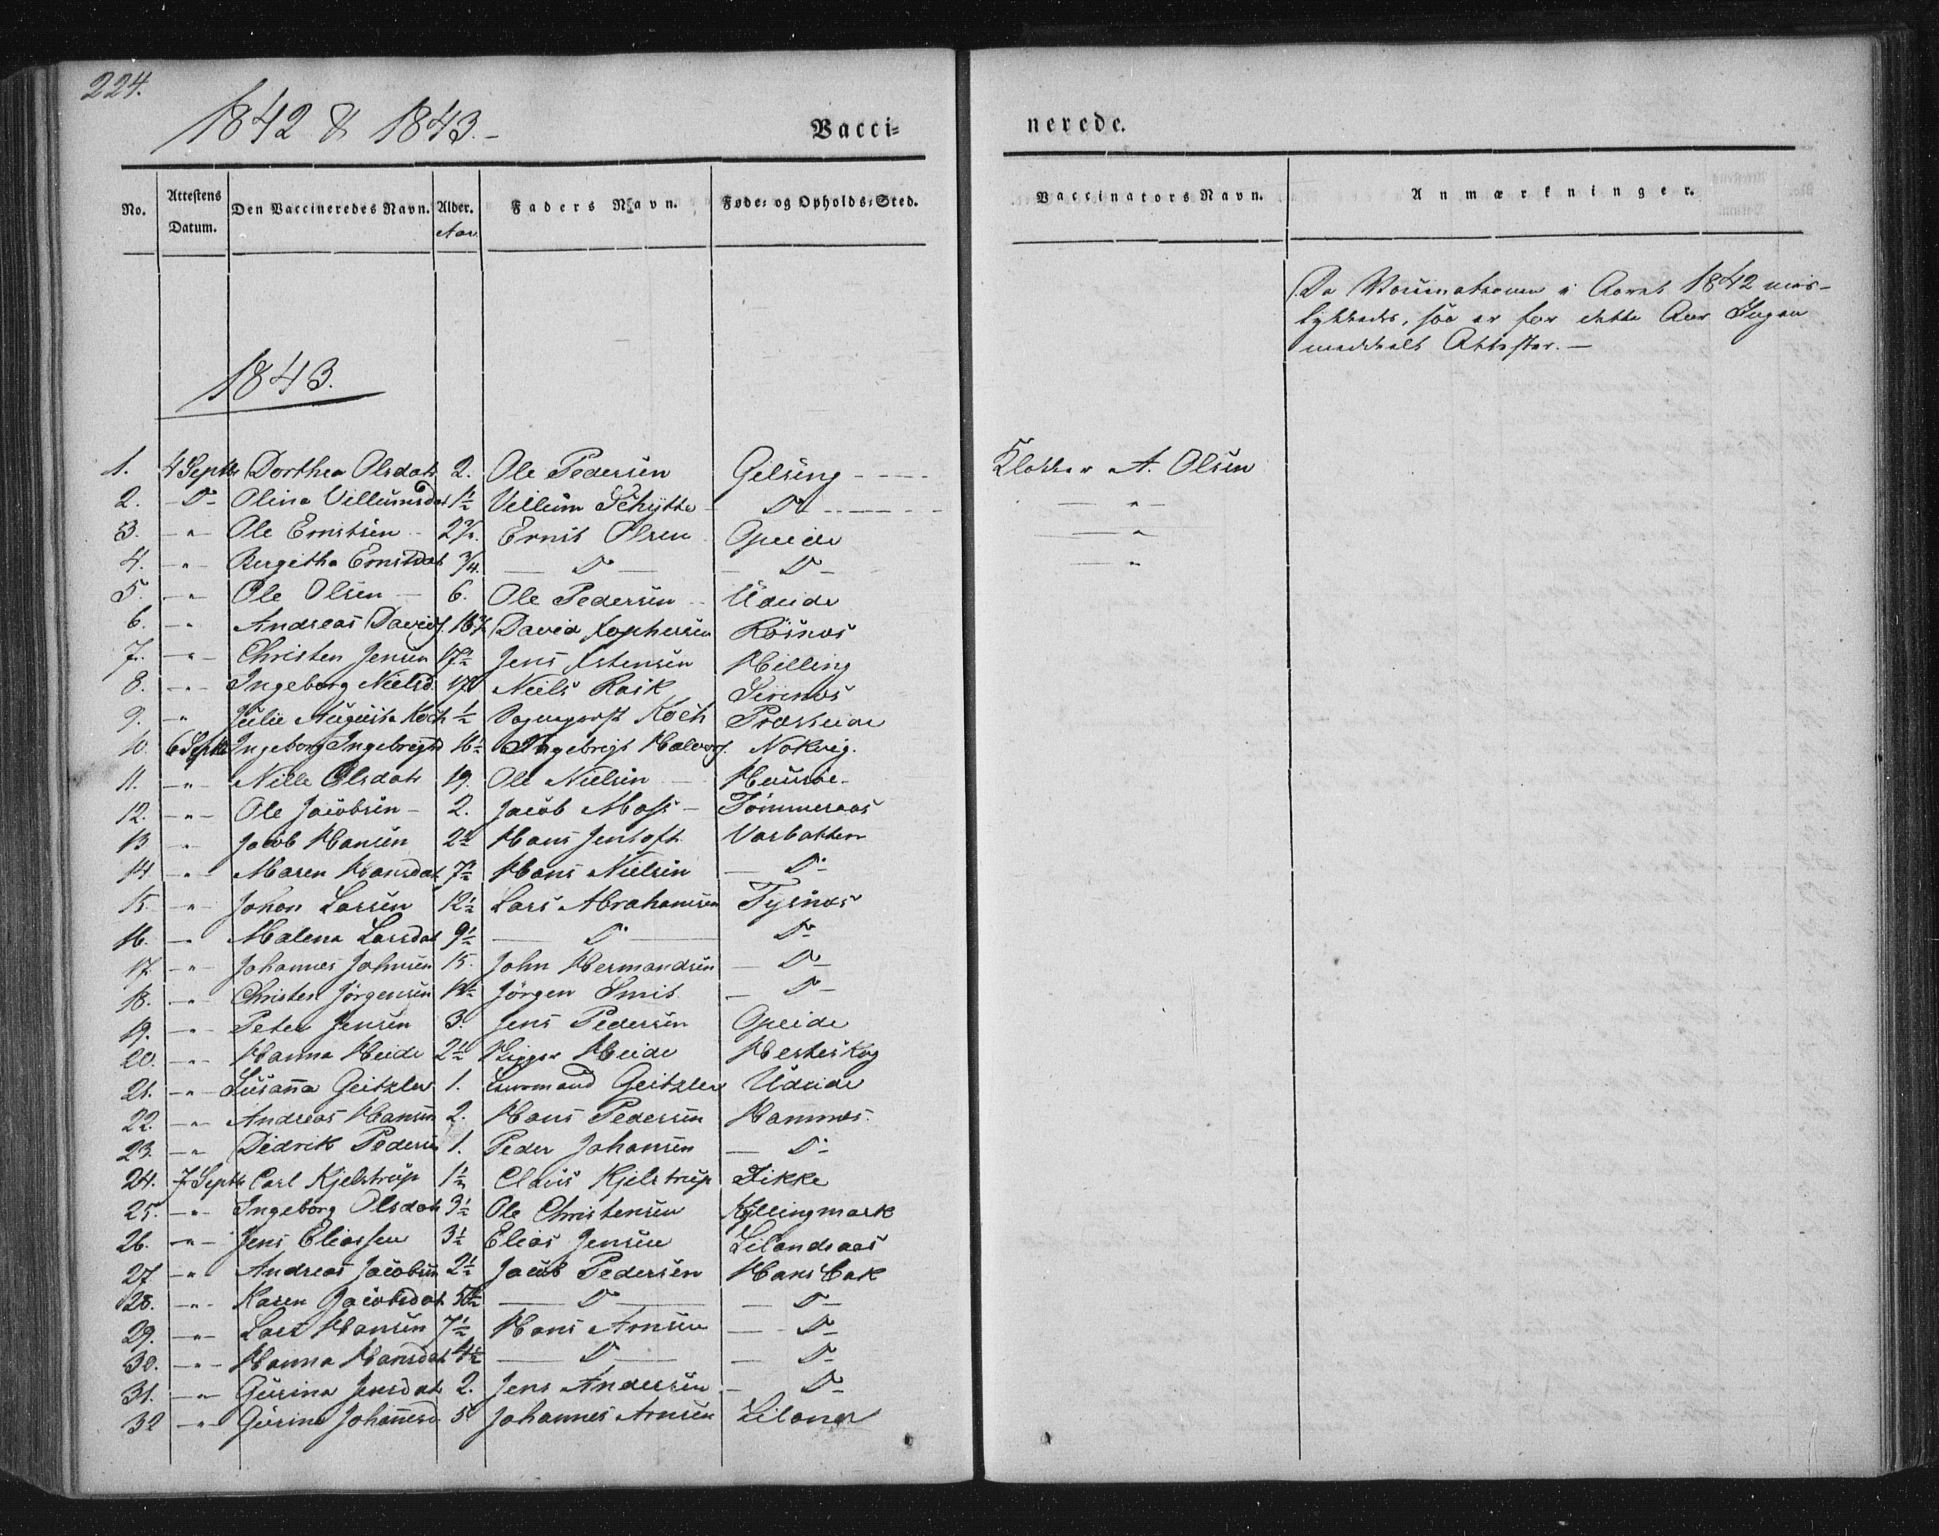 224.
1842 & 1843.-
Vacci=
nerede.
No.
Attestens Datum.
Den Vaccineredes Navn.
Alder. Aar
Faders Navn.
Føde= og Opholds=Sted.
Vaccinators Navn.
Anmærkninger.
Da Vaccinationen i Aaret 1842 mis-
lykkedes, saa er for dette Aar Ingen
meddealt Attester. —
1843.
1. 4 Septbr Dorthea Olsdatr 2. Ole Pedersen Gilseng - - - - Klokker A. Olsen
2. - D- Olina Villumsdat 1½ Villum Schytte D - - - - — " —
3. - " - Ole Ernstsen 2½. Ernst Olsen Opeide — "
4. - " Bergitha Ernstdat ¾. — D — - D - — "
5. - " Ole Olsen — 6. Ole Pedersen - Udeide
6. - " Andreas Davids. David Xophersen Rösnæs
7. - " - Christen Jensen 17½ Jens Estensen Helling
8. - " - Ingeborg Nielsd. Niels Rask
9. " Julie Augusta Koch ½ Koch Præsteide
10. 6 Septbr Ingeborg Ingebregtd 16½ Ingebrigt Halvors. Nokvig.
11. - " - Nille Olsdatr 19. Ole Nielsen
12. - " - Ole Jacobsen - 2. Jacob Moss - Tömmeraas
13 " Jacob Hansen 2½ Hans Jentoft Varbakken
14 - " Maren Hansdat. 7½ Hans Nielsen — D-
15. - " Johan Larsen 12½ Lars Abrahamsen Tysnæs
16. - " Malena Larsdat 9½ — D — D-
17. - " - Johannes Johnsen 15. John Hermandsen — D —
18. - " Christen Jörgensen Jörgen Smit — D —
19. - " - Peter Jensen 3. Jens Pedersen Opeide
20. - " - Hanna Heide 2½ Heide Hesteskog
21. - " - Susanna Geitzler 1. Geitzler Udeide
22. - " - Andreas Hansen 2. Hans Pedersen Hamnes.
23. - " Didrik Peders 1. Peder Johansen — D-
24. 7 Septbr Carl Kjelstrup 1½ Claus Kjelstrup Dikke
25. - " - Ingeborg Olsdatr 3½ Ole Christensen Kyllingmark
26. - " - Jens Eliassen 3½ Elias Jensen Lilandsaas
27 - " Andreas Jacobsen 2½ Jacob Pedersen Hans Bak
28. - " - Karen Jacobsdat 5½ — D — — D —
29. - " - Lars Hansen 7½ Hans Arnsen — D —
30. - " - Hanna Hansdat 4½ — D — — D —
31. - " Gurina Jensdat 2. Jens Andersen — D —
32 - " - Gurina Johannesd 5 Johannes Arnsen Liland